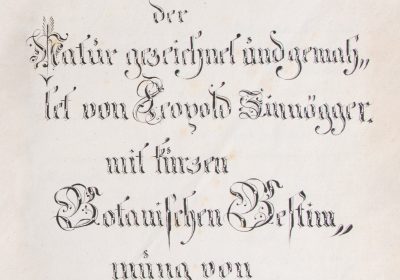 der
Natur gezeichnet und gemah„
let von Leopold Zinnögger.
mit kurzen
Botanischen Bestim„
mung von